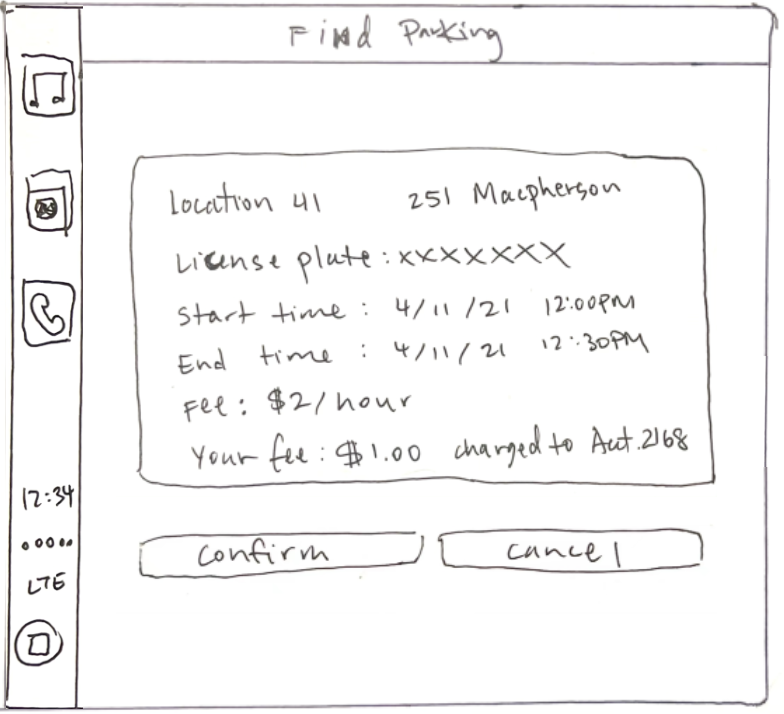 Find Parking
Location 41 251 Macpherson
License plate: xxxxxxx
Start time: 4/11/21 12:00PM
End time: 4/11/21 12:30PM
Fee: $2/hour
Your fee: $1.00 charged to Act. 2168
Confirm cancel
12:34
LTE